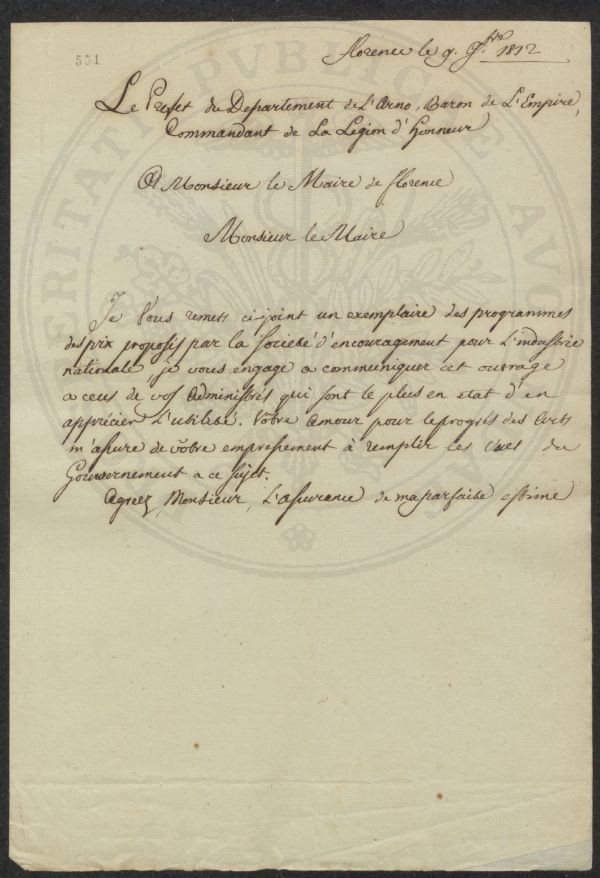 551
florence le 9. 9.bre 1812
Le Prefet du Departement de L'Arno, Baron de L'Empire,
Commandant de La Legion d'Honneur
A Monsieur le Maire de florence
Monsieur le Maire
Je Vous remets ci-joint un exemplaire des programmes
des prix proposés par la Societé d'encouragement pour L'industrie
nationale je vous engage a communiquer cet ouvrage
a ceux de vos administrés qui sont le plus en etat d'en
apprécier L'utilité. Vôtre amour pour le progrès des Arts
m'assure de vôtre empressement à remplir les vues du
Gouvernement a ce sujet.
Agréez, Monsieur, L'assurance de ma parfaite estime
VERITATI PUBLICAE